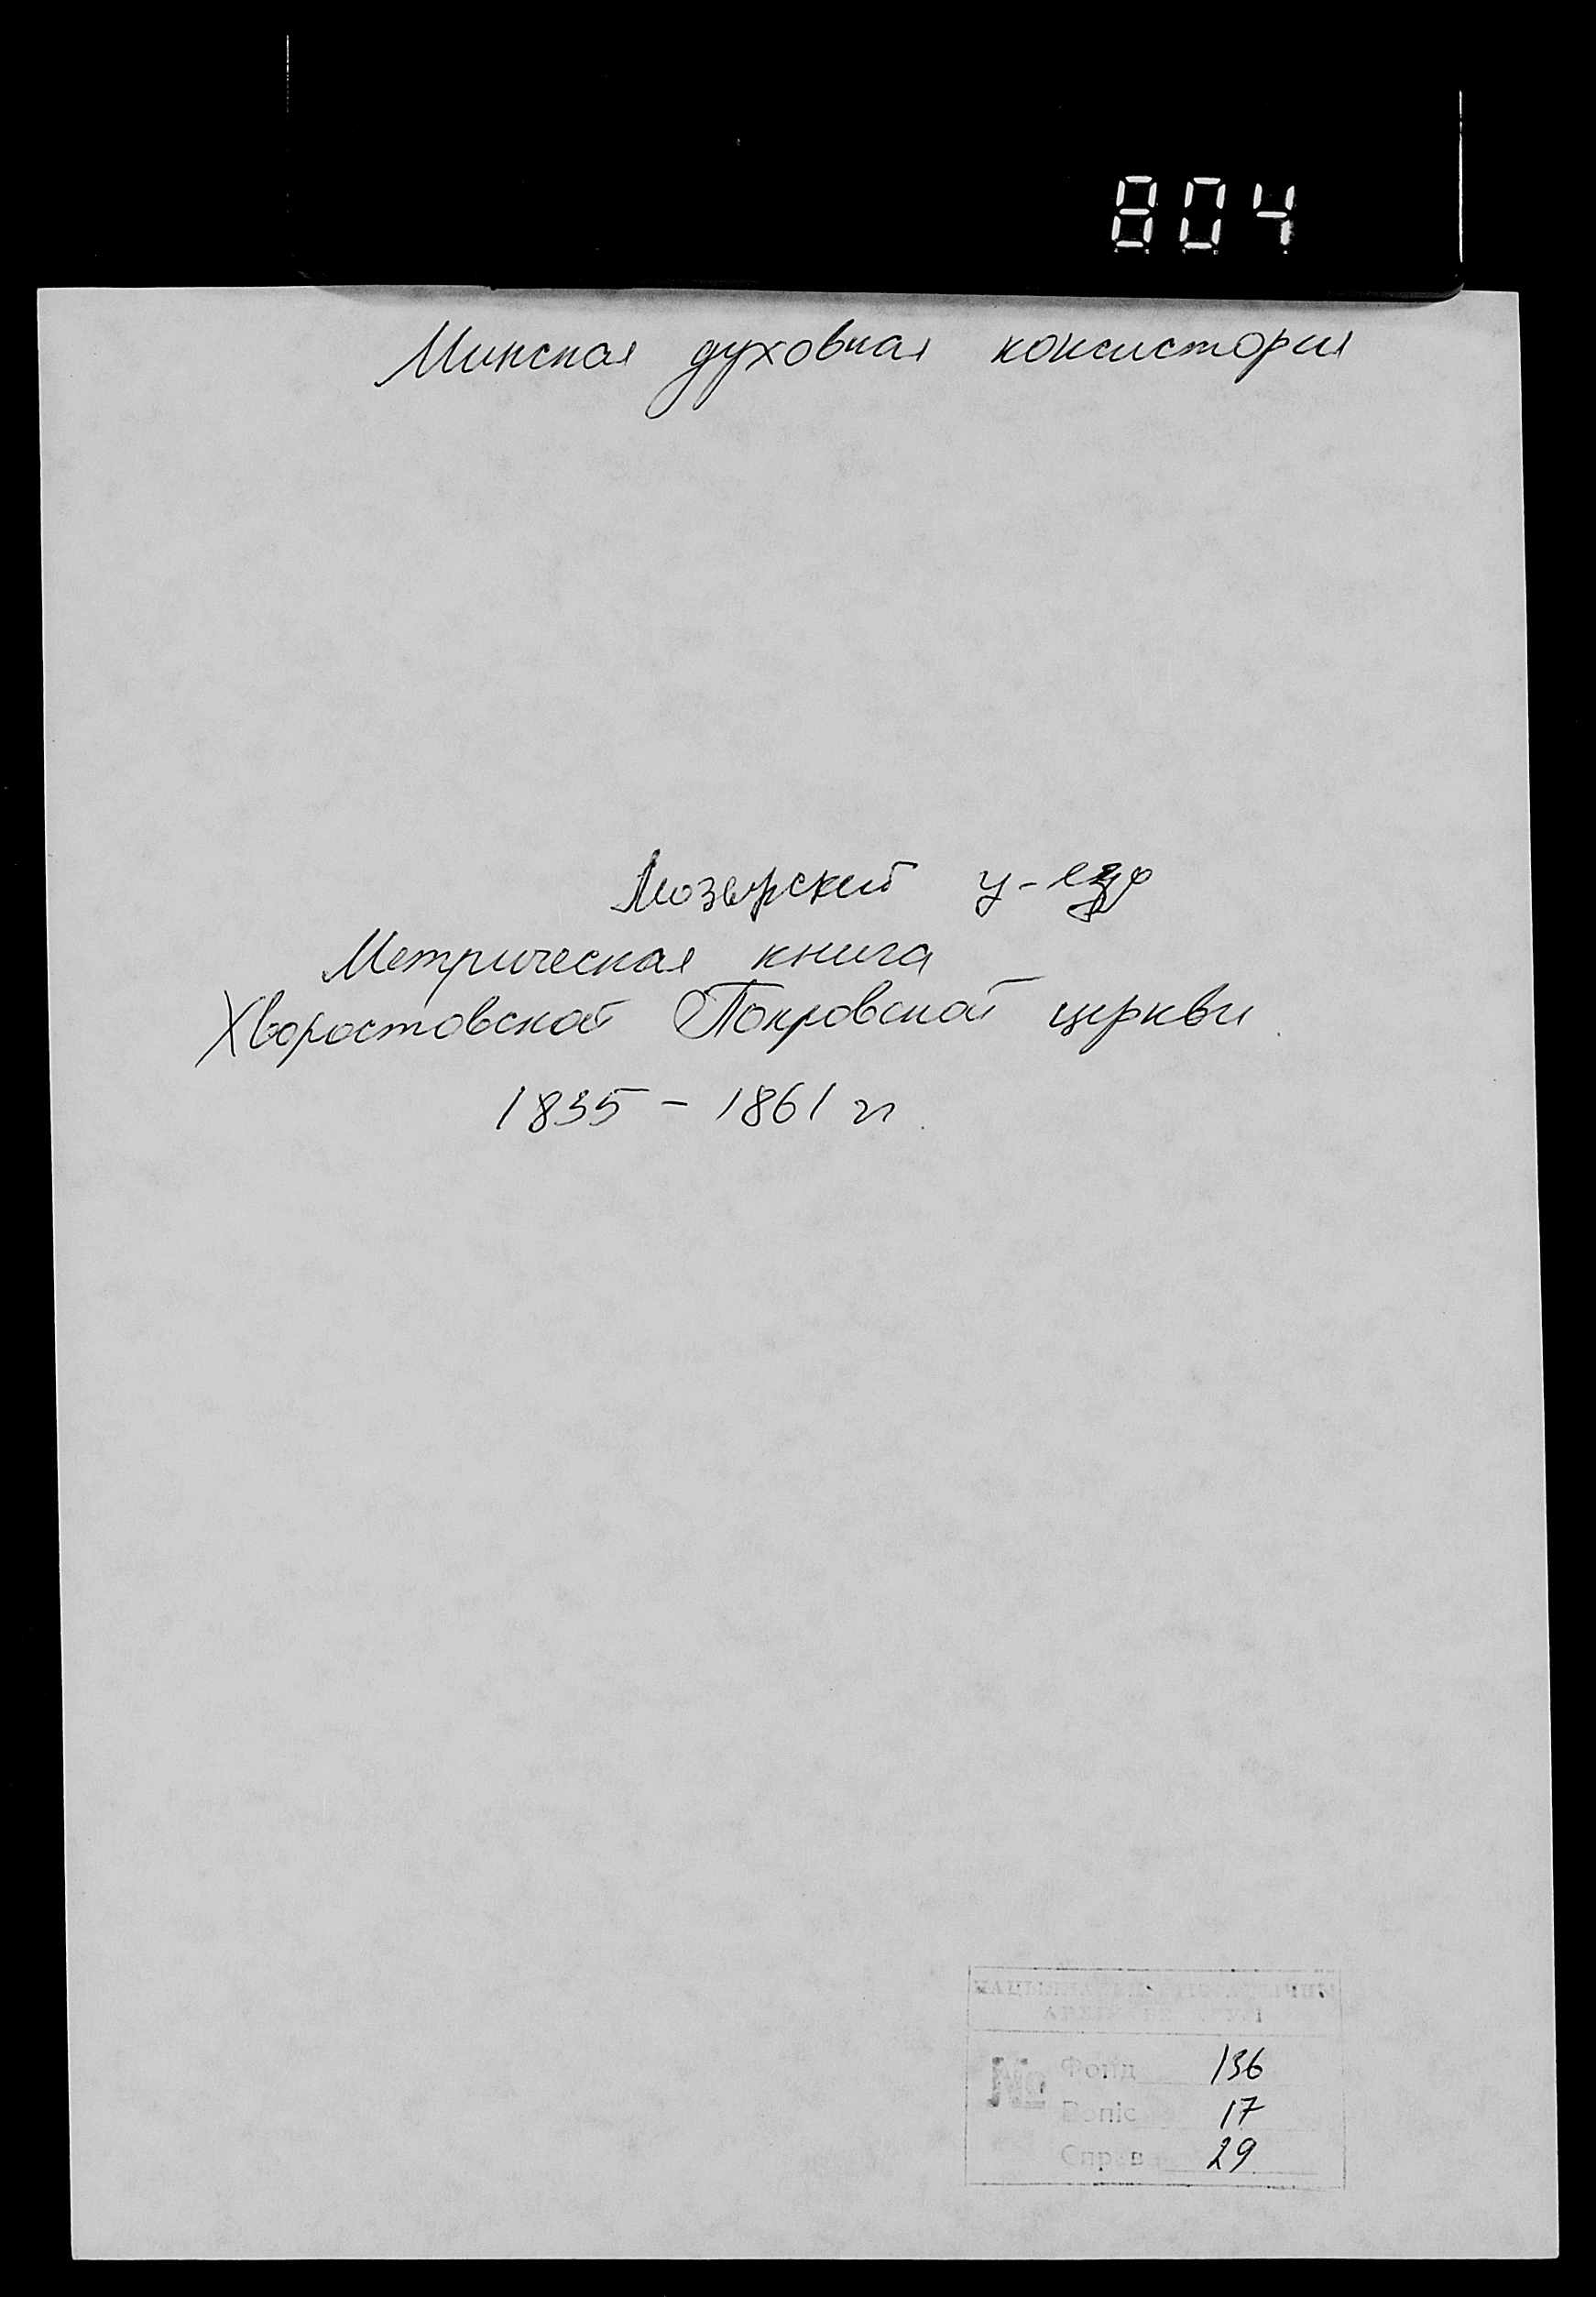 804
Минская духовная консистория
Мозырский у-езд
Метрическая книга
Хворостовской Покровской церкви
1835 - 1861 гг.
НАЦЫЯНАЛЬНЫ ГІСТАРЫЧНЫ
АРХІЎ БЕЛАРУСІ
№ Фонд 136
Вопіс 17
Справа 29